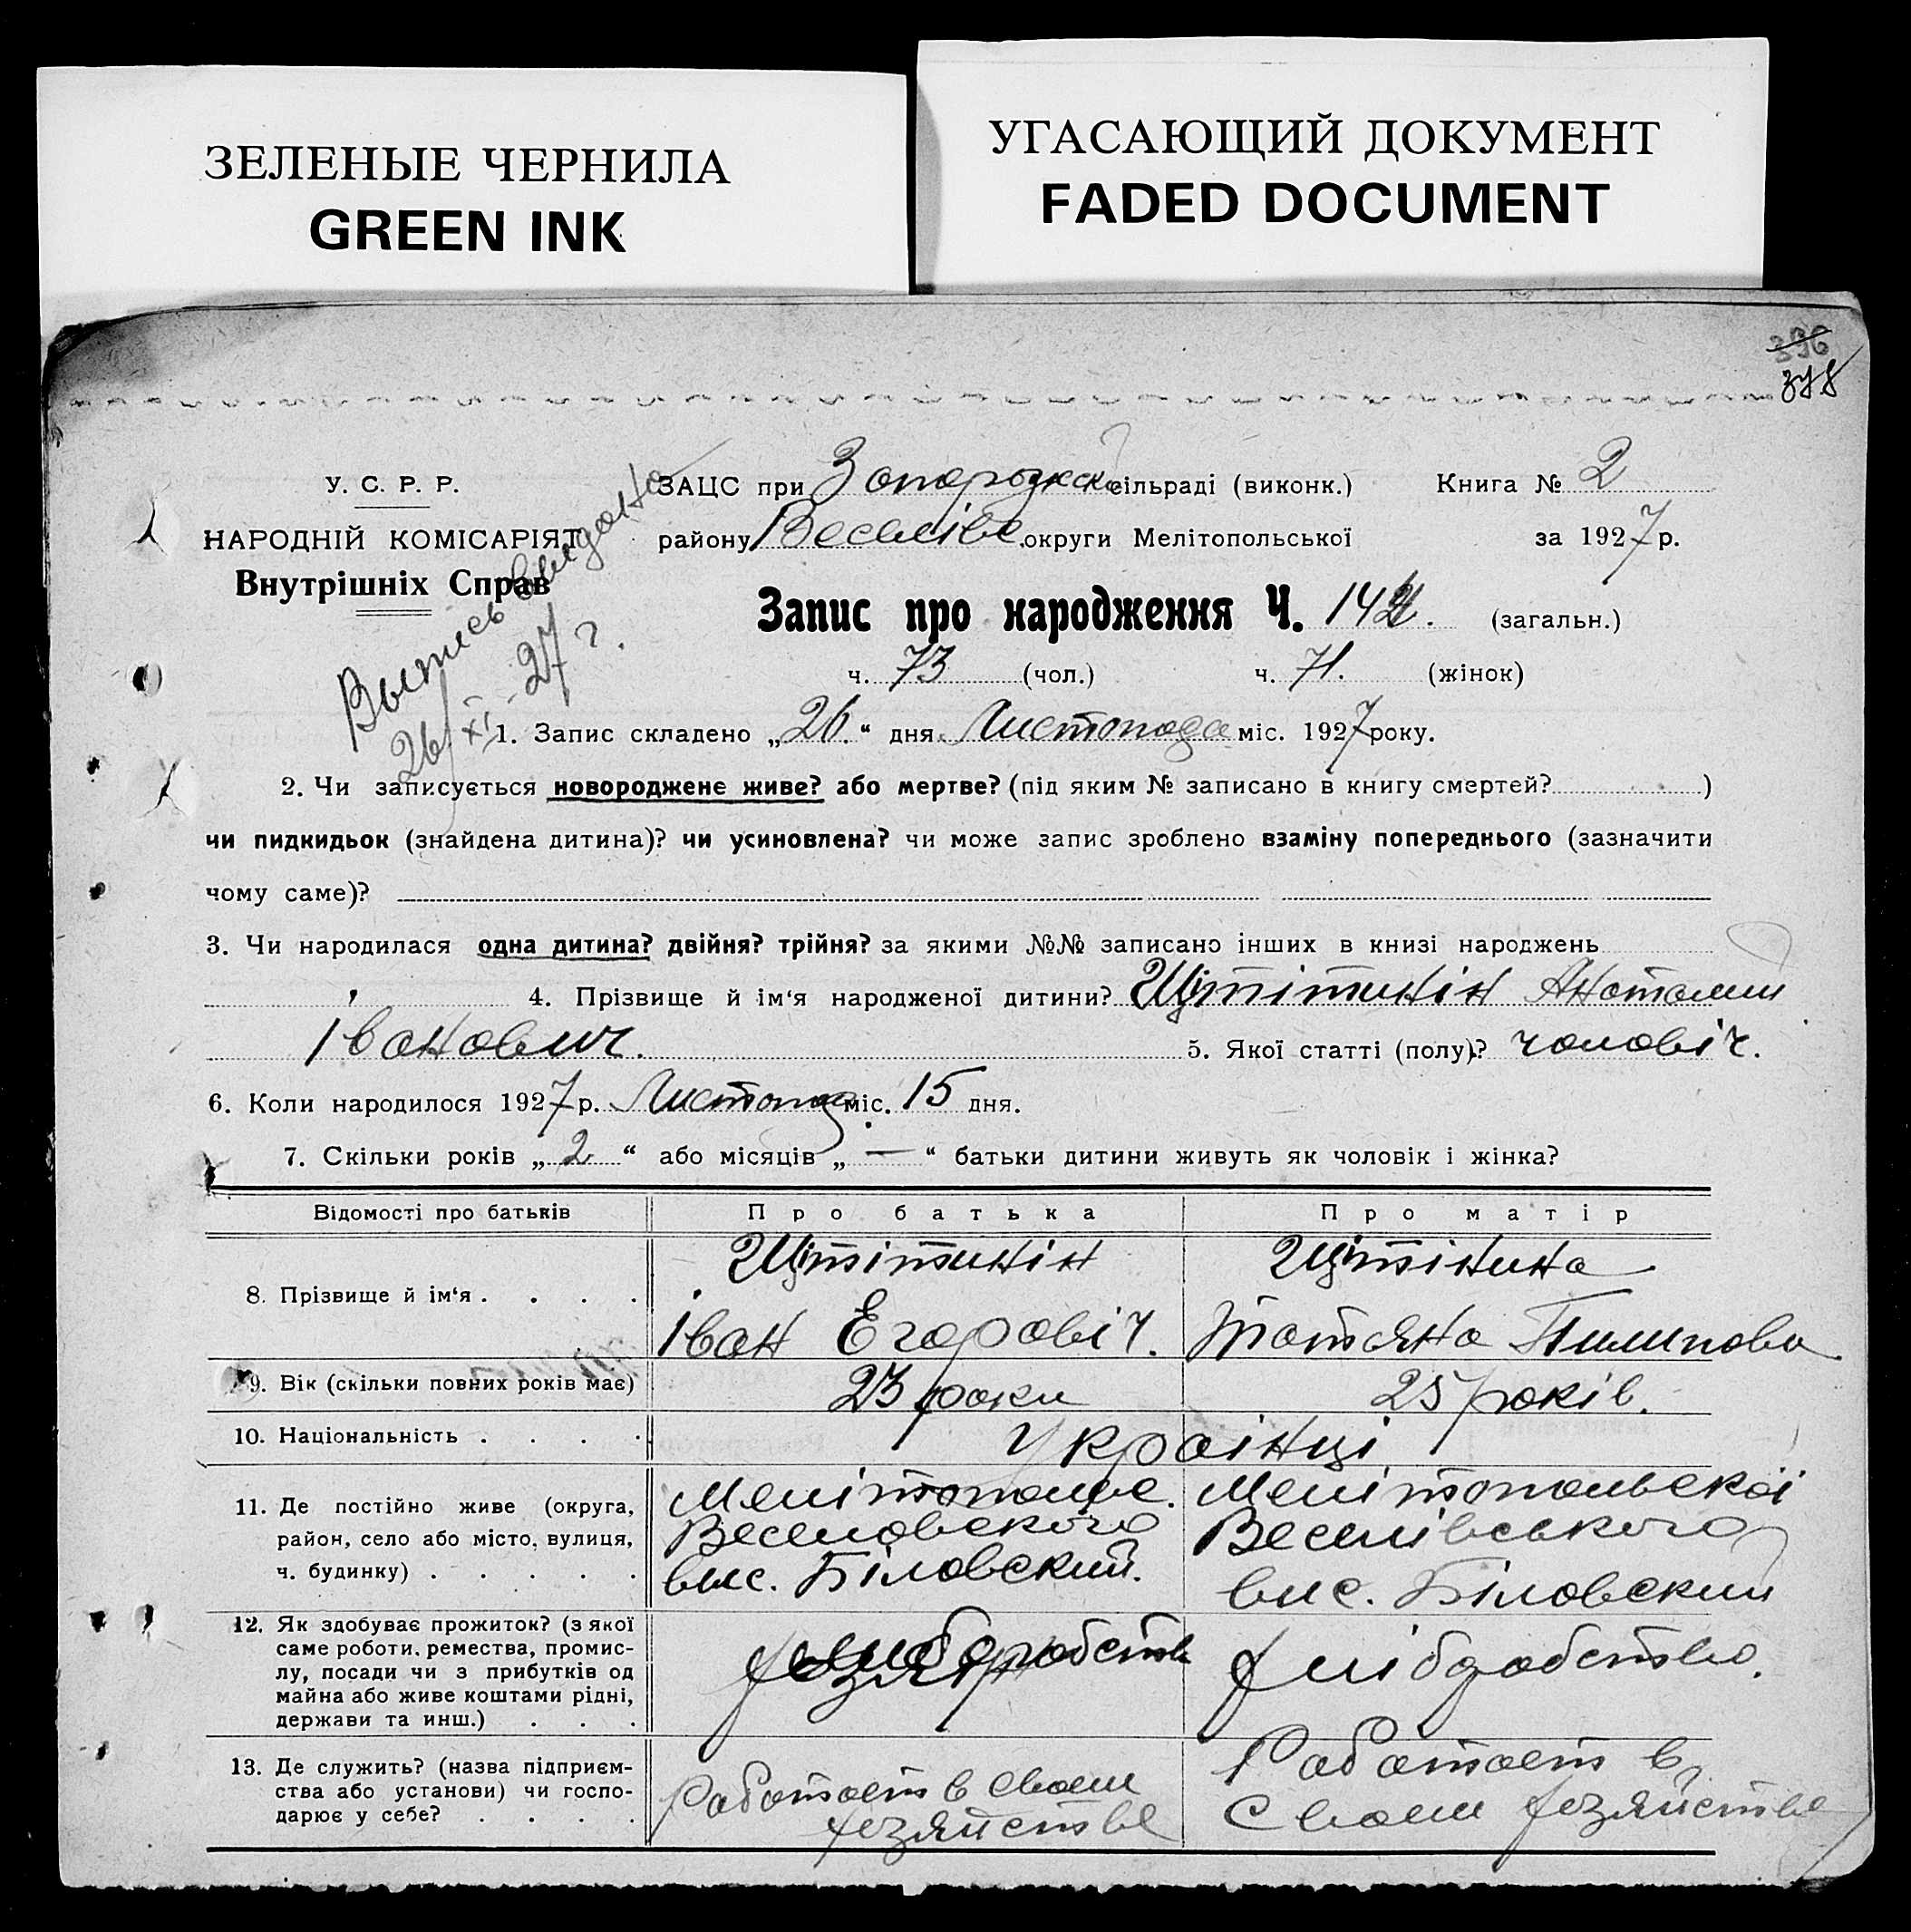 ЗЕЛЕНЫЕ ЧЕРНИЛА
GREEN INK
УГАСАЮЩИЙ ДОКУМЕНТ
FADED DOCUMENT
396
378
У. С. Р. Р.
НАРОДНІЙ КОМІСАРІЯТ
Внутрішніх Справ
Выпись выдана
26/XI-27 г.
ЗАЦС при сільраді (виконк.) Книга № 2
району Веселівс. округи Мелітопольської за 1927 р.
Запис про народження Ч. (загальн.)
ч. 73 (чол.) ч. 71. (жінок)
1. Запис складено „26“ дня Листопада міс. 1927 року.
2. Чи записується новороджене живе? або мертве? (під яким № записано в книгу смертей? )
чи пидкидьок (знайдена дитина)? чи усиновлена? чи може запис зроблено взаміну попереднього (зазначити
чому саме)?
3. Чи народилася одна дитина? двійня? трійня? за якими №№ записано інших в книзі народжень
4. Прізвище й ім‘я народженої дитини? Анотолий
Іванович. 5. Якої статті (полу)? чоловіч.
6. Коли народилося 1927 р. Листопад міс. 15 дня.
7. Скільки років „2“ або місяців „—“ батьки дитини живуть як чоловік і жінка?
Відомості про батьків Про батька Про матір
8. Прізвище й ім‘я . . . .
Іван Егоровіч. Татьяна Пилипова
9. Вік (скільки повних років має) 23 роки 25 років.
10. Національність . . . . Українці
11. Де постійно живе (округа, район, село або місто, вулиця, ч. будинку) . . . . .
Мелітопольс. Мелітопольскої
Веселовского Веселівського
вис. Біловский. вис. Біловский
12. Як здобуває прожиток? (з якої
саме роботи, ремества, промис-
лу, посади чи з прибутків од
майна або живе коштами рідні,
держави та инш.) . . .
хліборобство.
13. Де служить? (назва підприєм-
ства або установи) чи госпо-
дарює у себе? . . . .
Работает в своем Работает в
хозяйстве своем хозяйстве